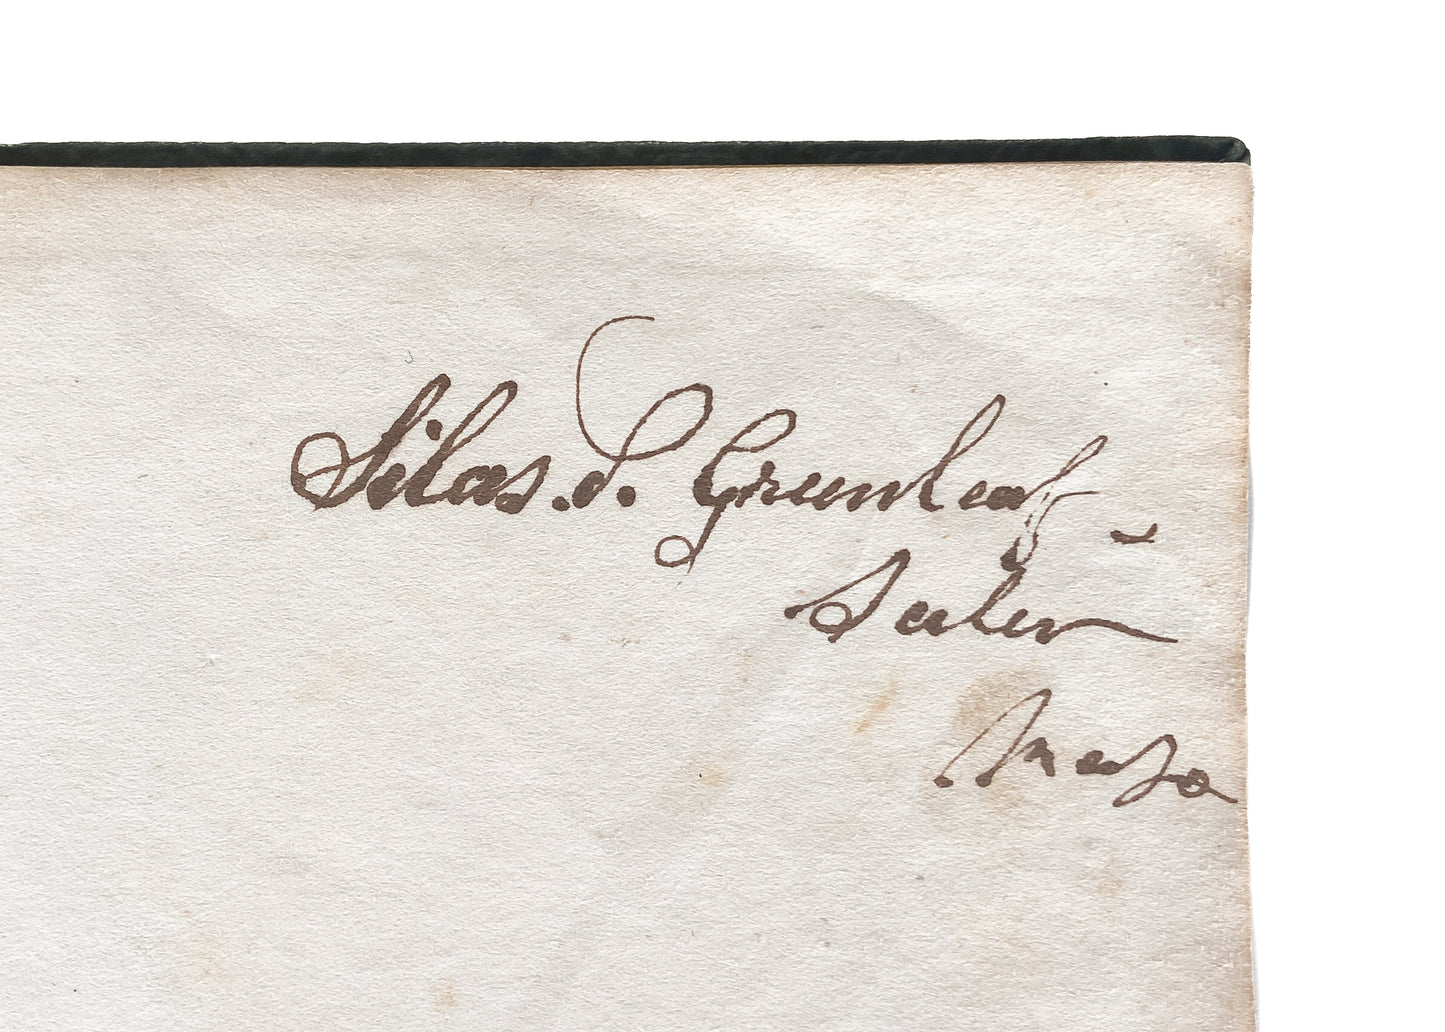 Silas. S. Greenleaf
Salem
Mass